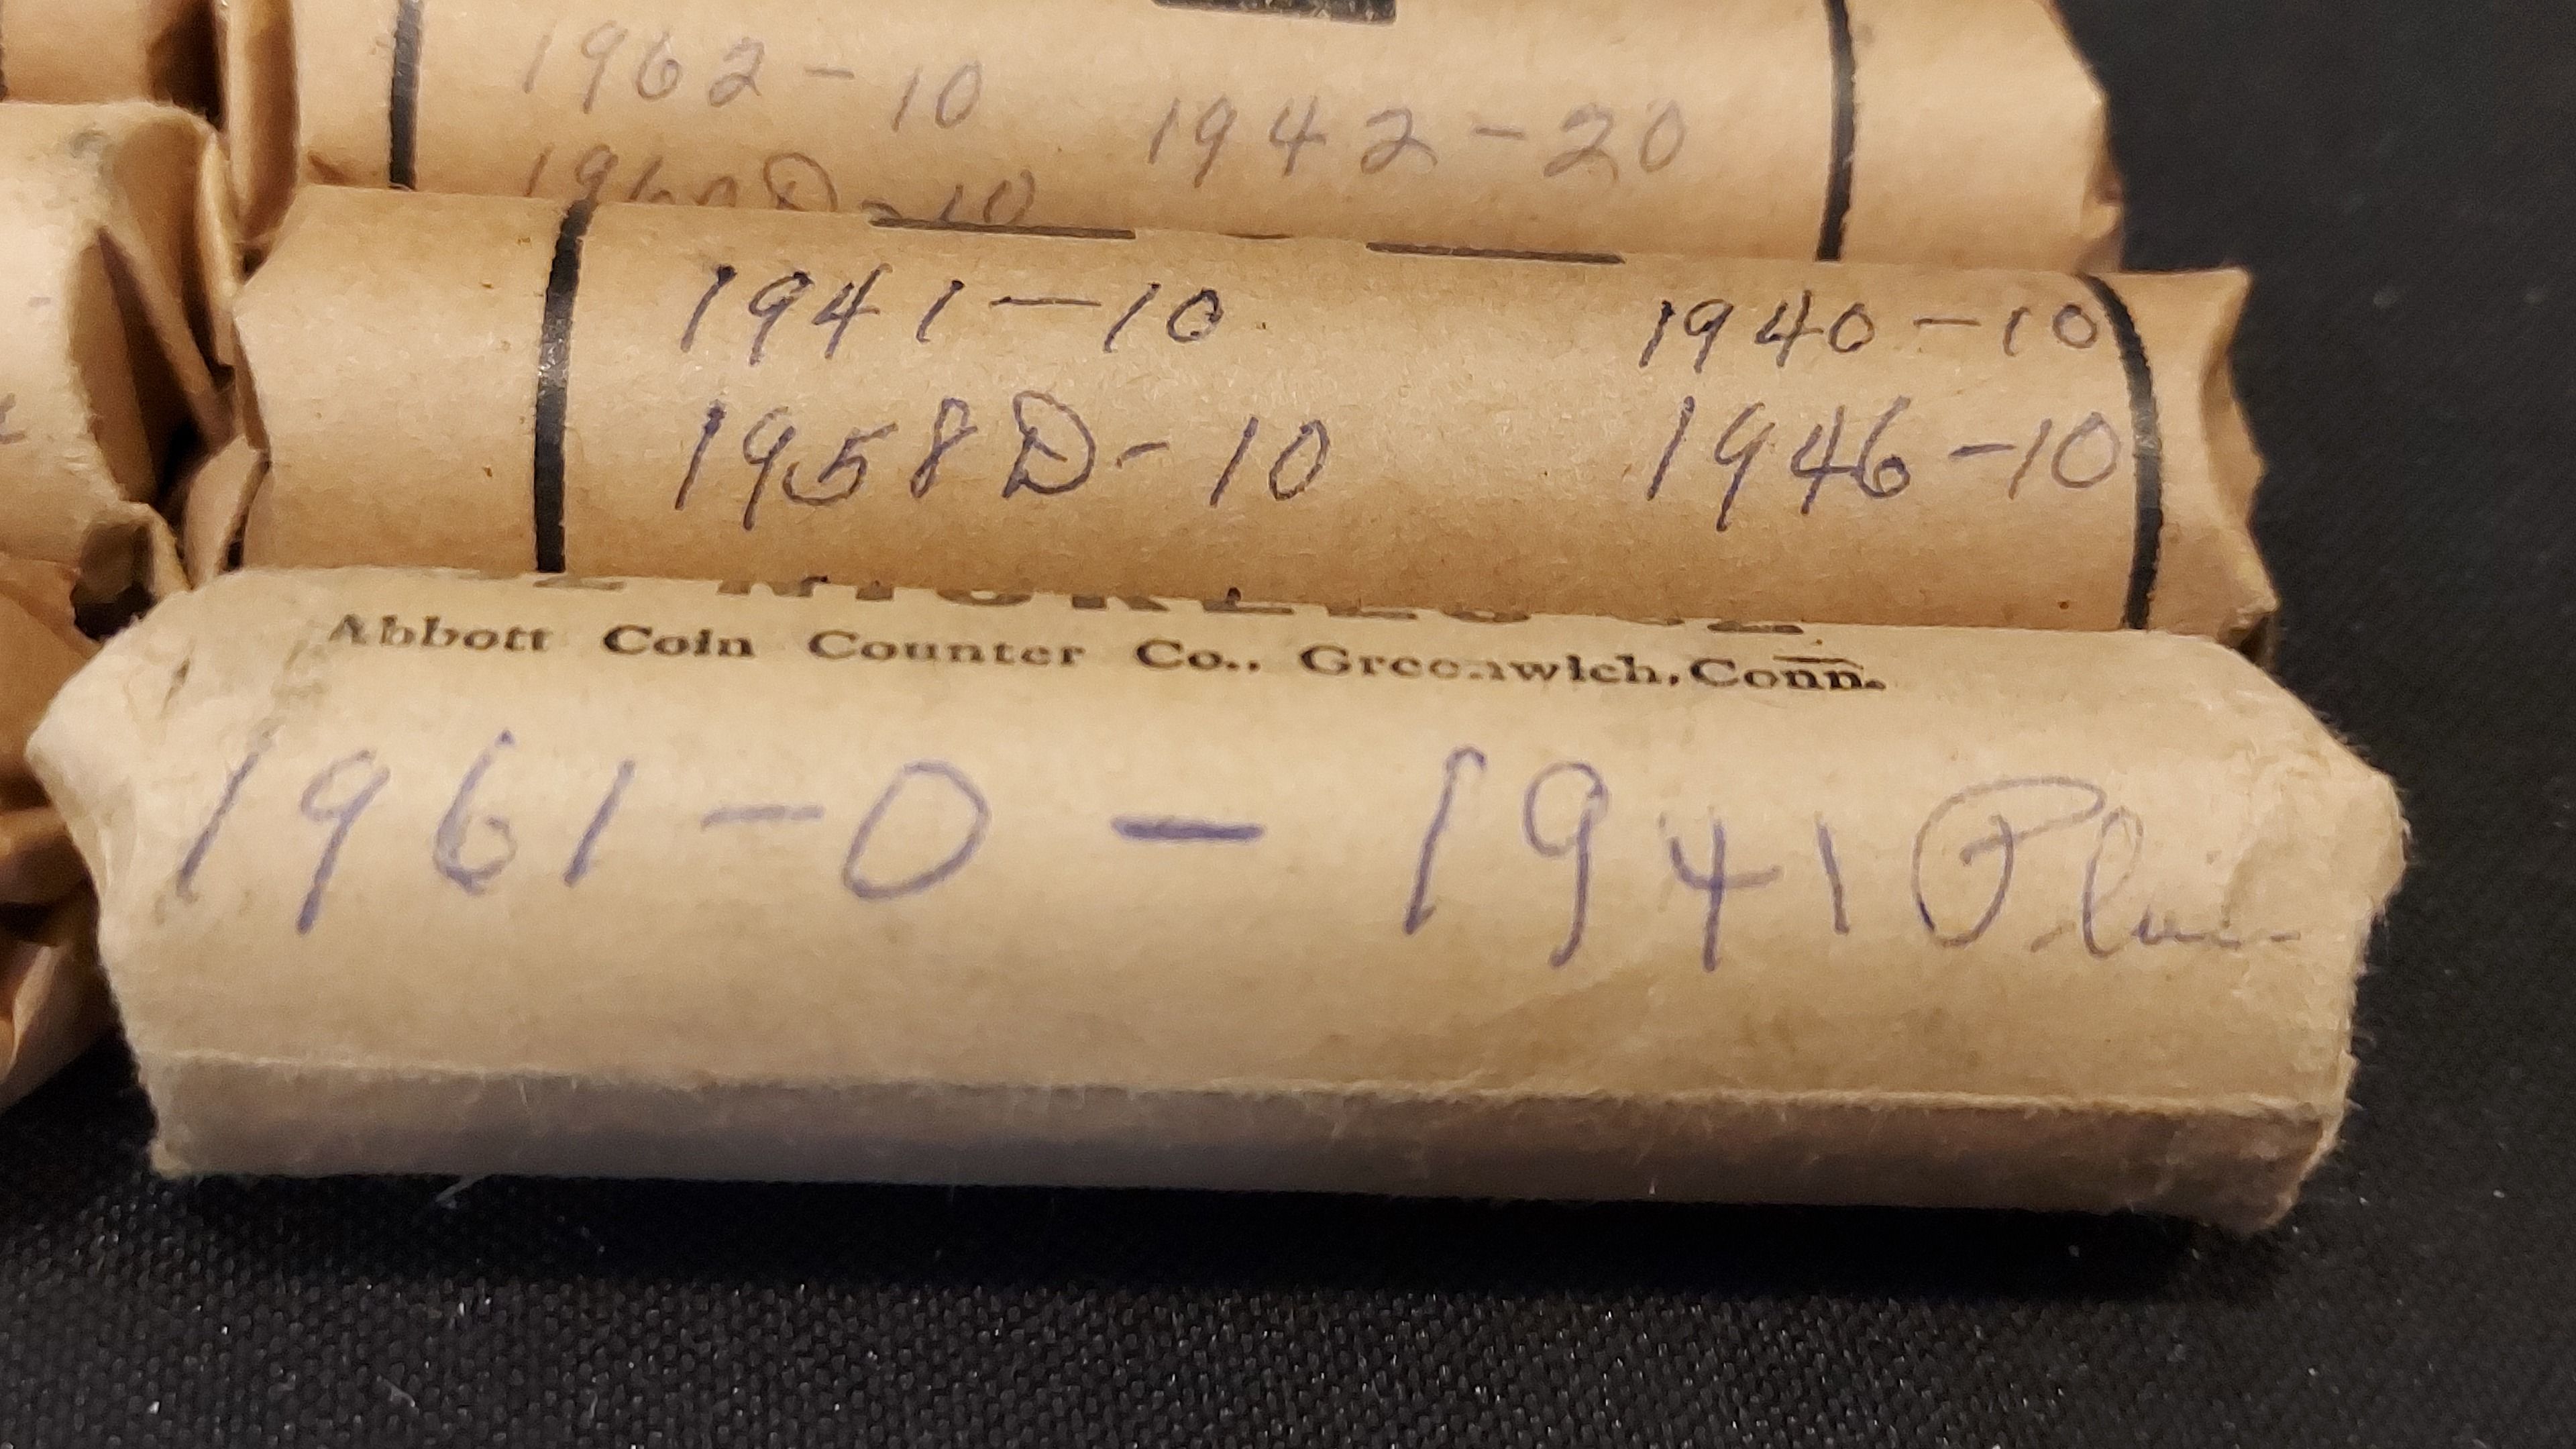 1962-10 1942-20
1960D-10
1941-10 1940-10
1958D-10 1946-10
NICKELS
Abbott Coin Counter Co., Greenwich, Conn.
1961-0 - 1941 Plain